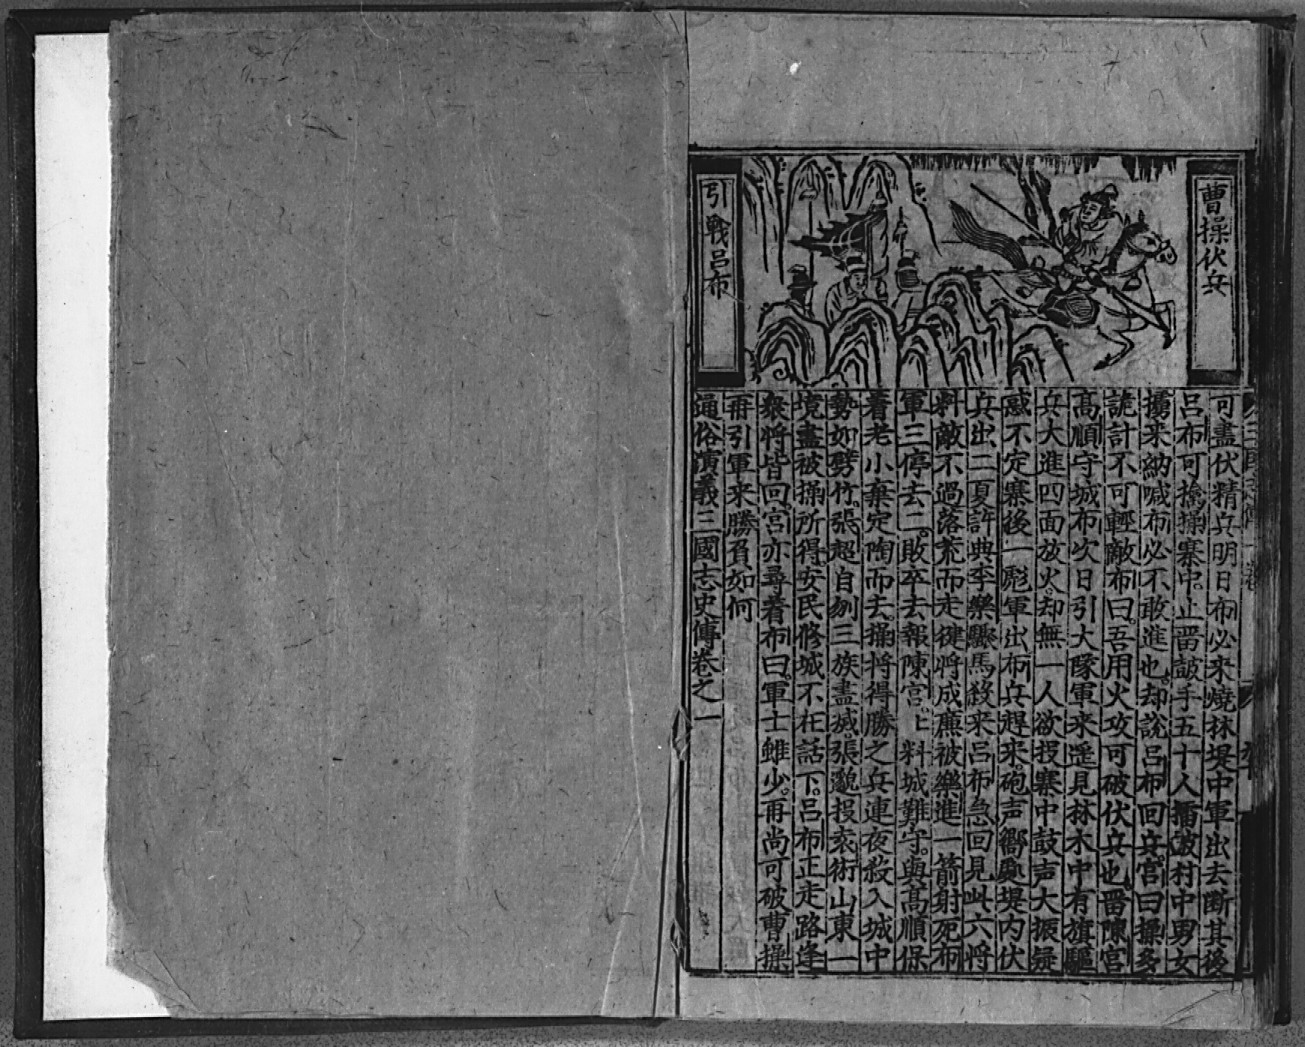 曹操伏兵
引戰呂布
可盡伏精兵明日布必來燒林堤中軍出去断其後
呂布可擒操寨中止畱皷手五十人擂皷村中男女
擄来納喊布必不敢進也却說呂布回兵宮曰操多
詭計不可輕敵布曰吾用火攻可破伏兵也畱陳宮
高順守城布次日引大隊軍来遥見林木中有旗驅
兵大進四面放火却無一人欲投寨中鼓声大振疑
惑不定寨後一彪軍出布兵趕来砲声響處堤内伏
兵出二夏許典李樂驟馬殺来呂布急回見此六将
料敵不過落荒而走徤将成廉被樂進一箭射死布
軍三停去二敗卒去報陳宮上料城難守與高順保
着老小棄定陶而去操将得勝之兵連夜殺入城中
勢如劈竹張超自刎三族盡滅張邈投袁術山東一
境盡被操所得安民修城不在話下呂布正走路逢
衆将皆回宮亦尋着布曰軍士雖少再尚可破曹操
再引軍来勝負如何
通俗演義三國志史傳卷之一